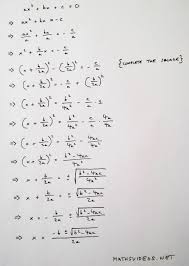 ax² + bx + c = 0
⇒ ax² + bx = -c
⇒ ax²/a + bx/a = -c/a
⇒ x² + b/a x = -c/a
⇒ (x + b/2a)² - (b/2a)² = -c/a {COMPLETE THE SQUARE}
⇒ (x + b/2a)² = -c/a + (b/2a)²
⇒ (x + b/2a)² = b²/4a² - c/a
⇒ (x + b/2a)² = b²/4a² - 4ac/4a²
⇒ (x + b/2a)² = b² - 4ac/4a²
⇒ x + b/2a = ± √b² - 4ac/4a²
⇒ x + b/2a = ± √b² - 4ac/2a
⇒ x = -b/2a ± √b² - 4ac/2a
⇒ x = -b ± √b² - 4ac/2a
MATHSVIDEOS.NET